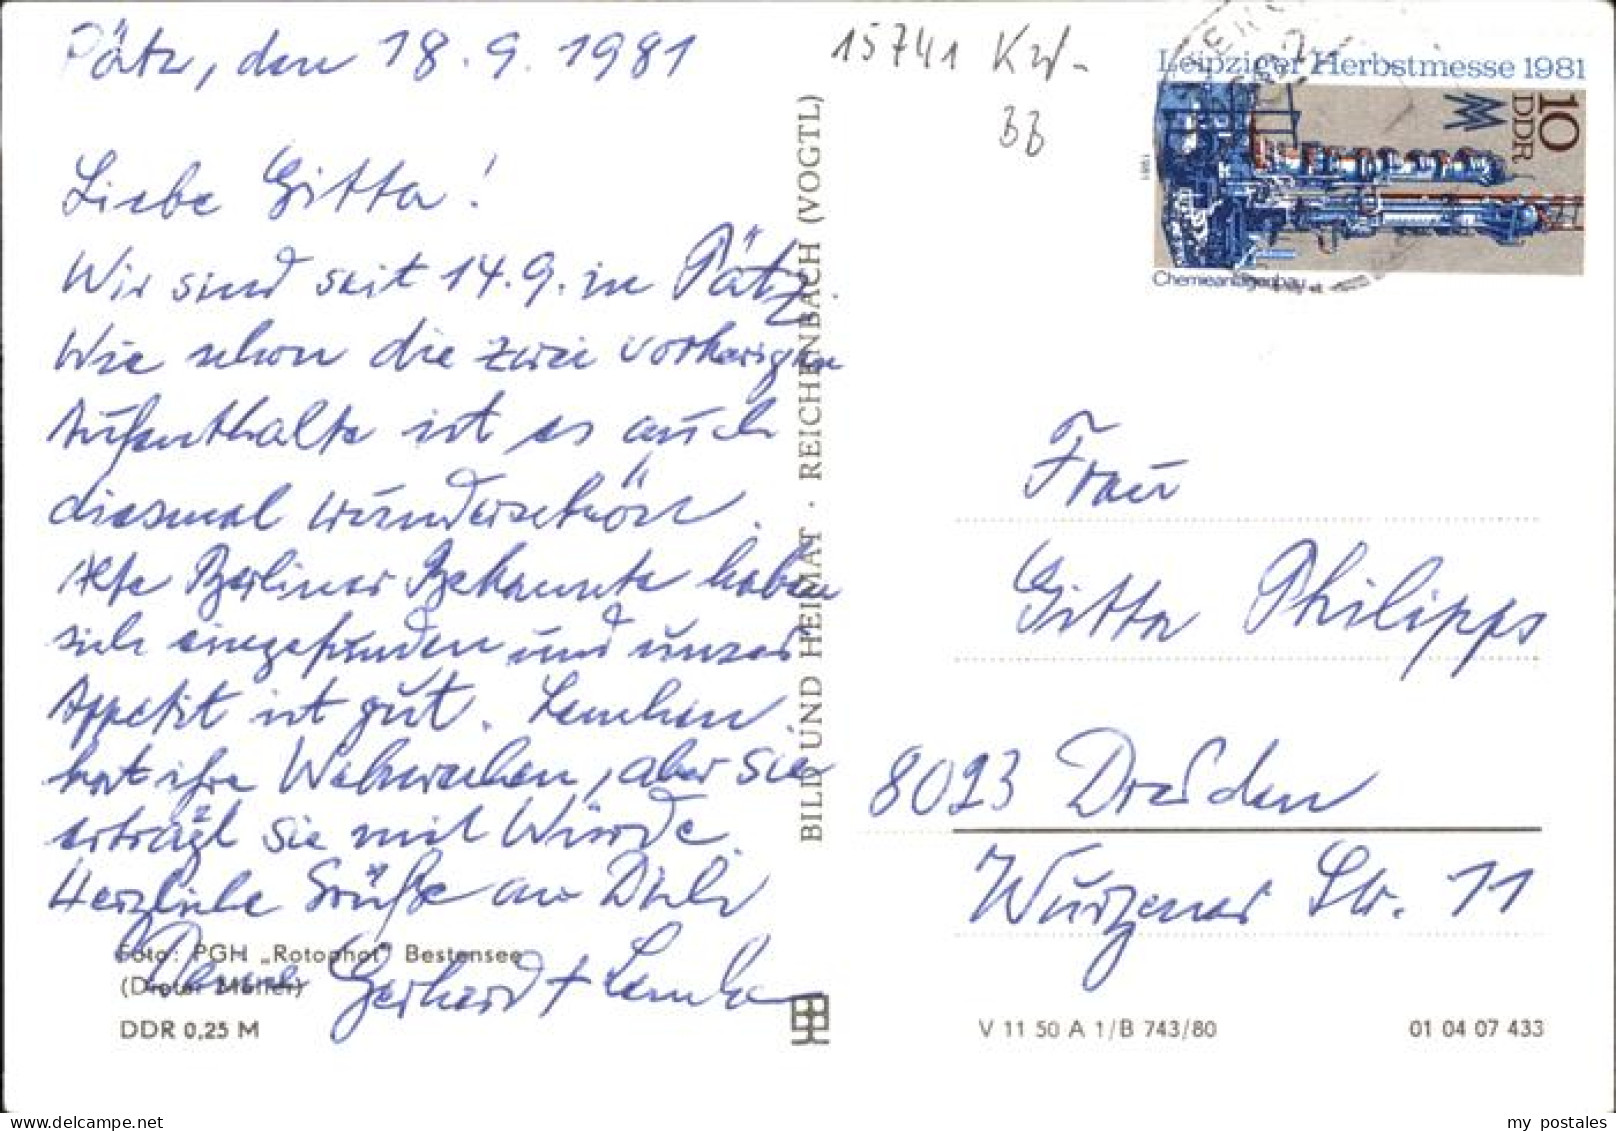 Pätz, den 18.9.1981
Liebe Gitta!
Wir sind seit 14.9. in Pätz.
Wie schon die zwei vorherigen
Aufenthalte ist es auch
diesmal wunderschön.
Alte Berliner Bekannte haben
sich eingefunden und unser
Appetit ist gut. Lenchen
hat ihre Wehwehchen, aber sie
erträgt sie mit Würde.
Herzliche Grüße an Dich
Gerhard +
Foto: PGH „Rotophot" Bestensee
(Dieter Möller)
DDR 0,25 M
BILD UND HEIMAT · REICHENBACH (VOGTL)
15741 Kw-
BB
Leipziger Herbstmesse 1981
10
DDR
1981
Chemieanlagenbau
Frau
Gitta Philipps
8023 Dresden
Wurzener Str. 11
V 11 50 A 1/B 743/80
01 04 07 433
my postales